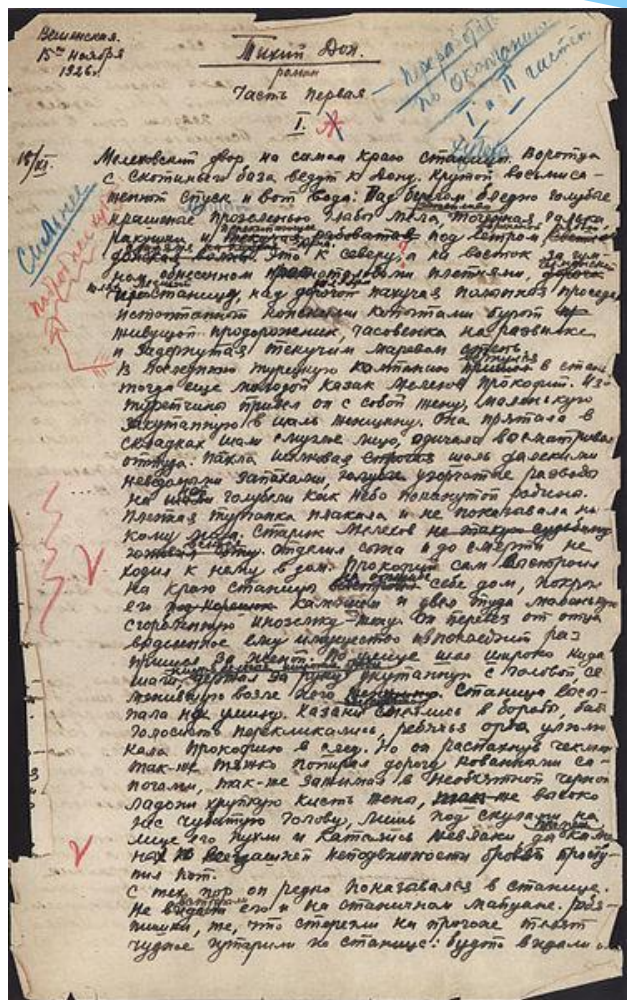 Вешенская.
15го ноября
1926г.
Тихий Дон.
роман
Часть первая
I.
— Перераб.
по окончании
I и II части.
15/XI.
Сильнее
подробнее
Мелеховский двор на самом краю станицы. Воротца
с скотиньего база ведут к Дону. Крутой восьмиса-
женный спуск и вот вода: Над берегом бледно голубые
крашеные прозеленью глабы мела,
ракушки и под ветром
Это к северу, а на восток за гум-
ном, обнесенном плетнями,
станицу, над дорогой пахучая полынок проседь
истоптанный конскими копытами бурый
живущой придорожник, часовенка на развилке
и задернутая текучим маревом степь
В последнюю турецкую кампанию в стан
тогда еще молодой казак Мелехов Прокофий. Из
туретчины привел он с собой жену, маленькую
закутанную в шаль женщину. Она прятала в
складках шали смуглое лицо, одичало высматривая
оттуда. Пахла шелковая шаль далекими
неведомыми запахами, узорчатые разводы
на голубели как небо покинутой родины.
Пленная турчанка плакала и не показывала ни
кому лица. Старик Мелехов
Отделил сына и до смерти не
ходил к нему в дом. Прокофий сам выстроил
на краю станицы себе дом, покрыл
его камышом и увел туда маленькую
сгорбленную иноземку-жену. Он перевез от отца
имущество и в последний раз
По улице шел широко кидая
шаги, держал за руку укутанную с головой, се
менившую возле него Станица высы-
пала на улицу. Казаки в бороды, бабы
голосисто перекликались, ребячья орда улюлю
кала Прокофию в след. Но он распахнув чекмень
так-же тяжко попирал дорогу коваными са-
погами, так-же зажимал в необъятной черной
ладони хрупкую кисть жены, так-же высоко
нес чубатую голову, лишь под скулами на
лице его пухли и катались желваки да
на всегдашней неподвижности бровях просту-
пил пот.
С тех пор он редко показывался в станице.
Не видали его и на станичном майдане.
чудное гутарили по станице: будто видали